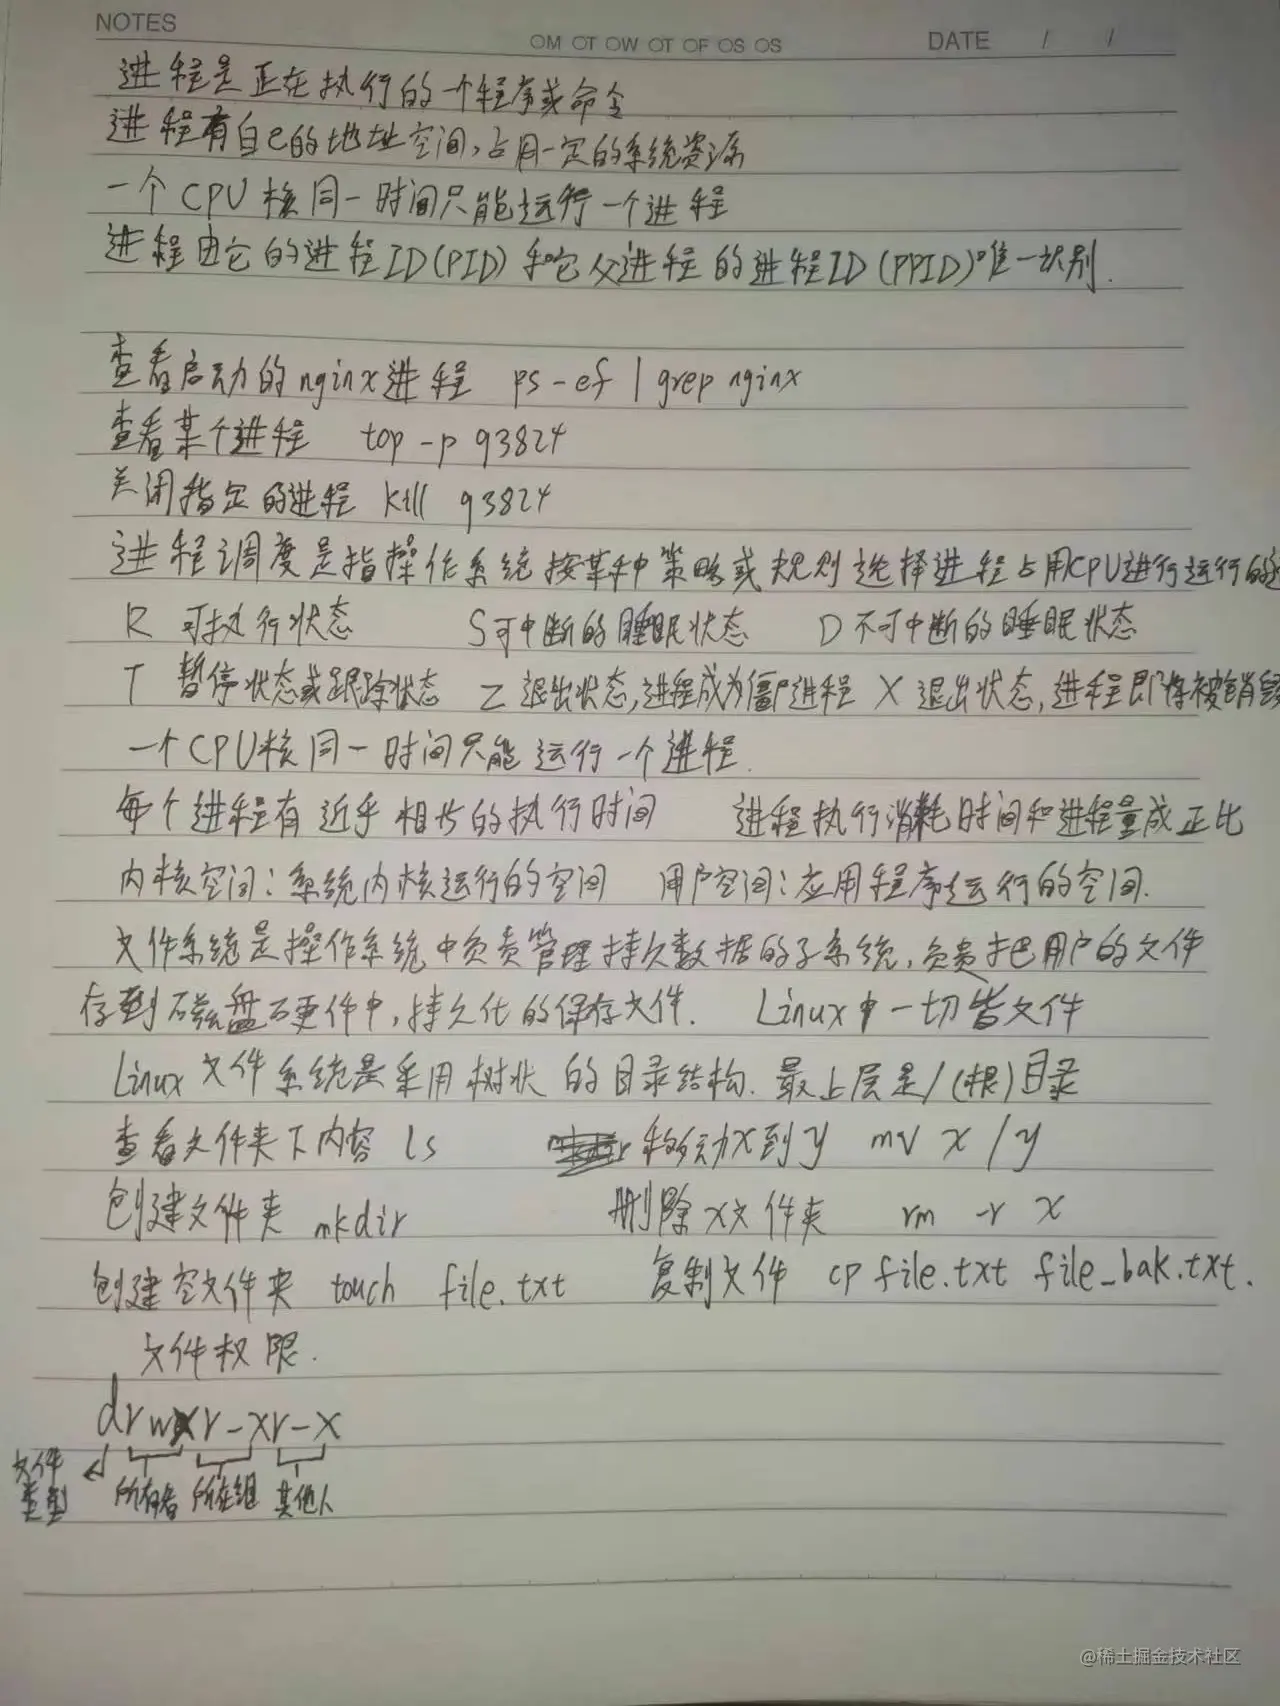 NOTES
OM OT OW OT OF OS OS DATE / /
进程是正在执行的一个程序或命令
进程有自己的地址空间,占用一定的系统资源
一个CPU核同一时间只能运行一个进程
进程由它的进程ID(PID)和它父进程的进程ID(PPID)唯一识别.
查看启动的nginx进程 ps -ef | grep nginx
查看某个进程 top -p 93824
关闭指定的进程 kill 93824
进程调度是指操作系统按某种策略或规则选择进程占用CPU进行运行的
R 可执行状态 S可中断的睡眠状态 D不可中断的睡眠状态
T 暂停状态或跟踪状态 Z 退出状态,进程成为僵尸进程 X 退出状态,进程即将被销毁
一个CPU核同一时间只能运行一个进程.
每个进程有近乎相当的执行时间 进程执行消耗时间和进程量成正比
内核空间:系统内核运行的空间 用户空间:应用程序运行的空间.
文件系统是操作系统中负责管理持久数据的子系统,负责把用户的文件
存到磁盘硬件中,持久化的保存文件. Linux中一切皆文件
Linux文件系统是采用树状的目录结构.最上层是/(根)目录
查看文件夹下内容 ls 移动x到y mv x /y
创建文件夹 mkdir 删除x文件夹 rm -r x
创建空文件夹 touch file.txt 复制文件 cp file.txt file_bak.txt.
文件权限.
drwxr-xr-x
文件类型 所有者 所在组 其他人
@稀土掘金技术社区